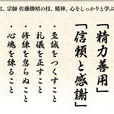 宗師 佐藤勝昭の技、精神、心をしっかりと学ぶ
「精力善用」
「信頼と感謝」
・至誠をつくすこと
・礼儀を正すこと
・修練を怠らぬこと
・心魂を練ること